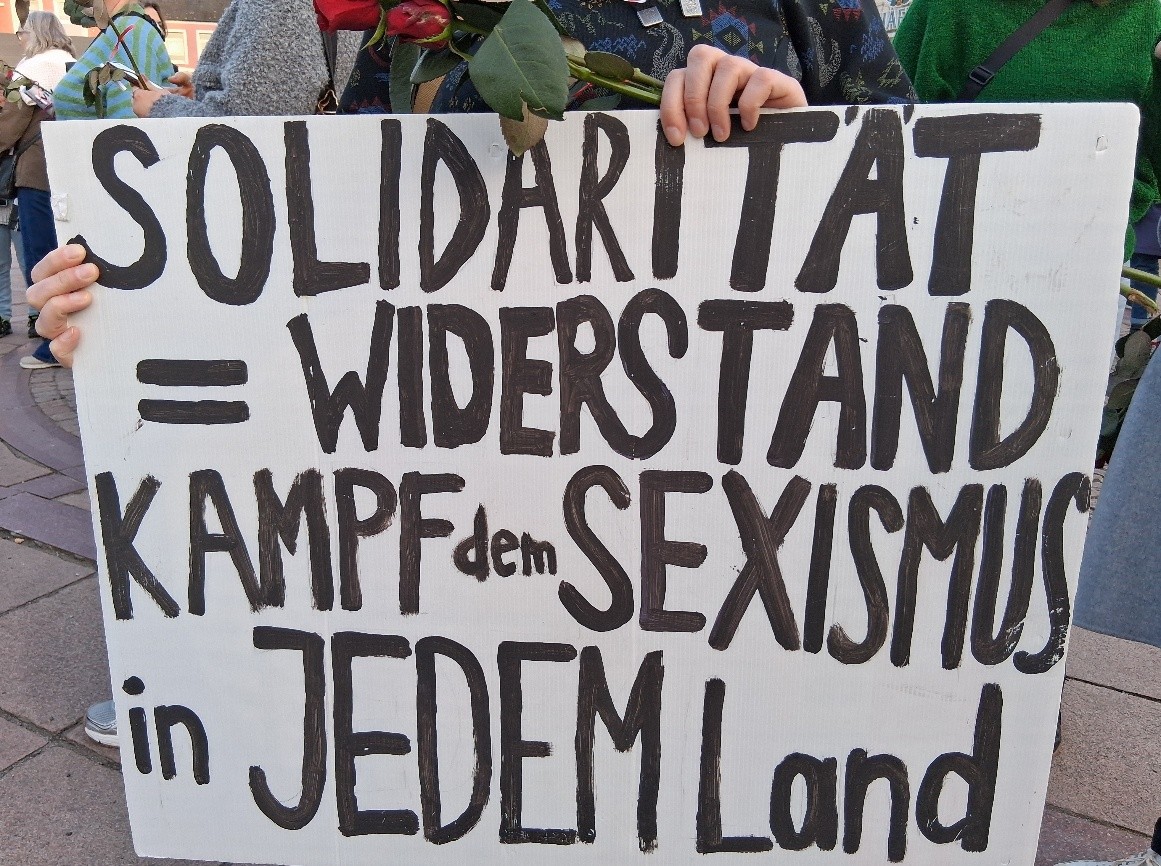 SOLIDARITÄT
= WIDERSTAND
KAMPF dem SEXISMUS
in JEDEM Land